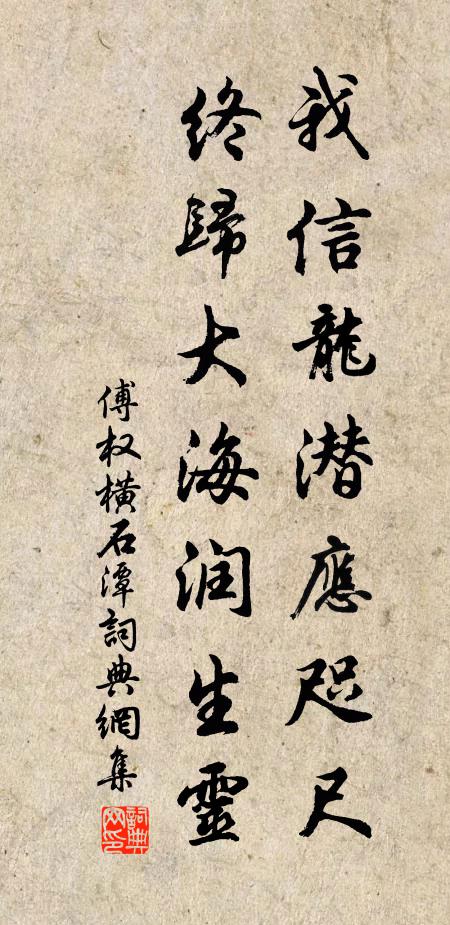 我信龍潜應咫尺
終歸大海润生靈
傅权橫石潭詞典網集
詞典网印